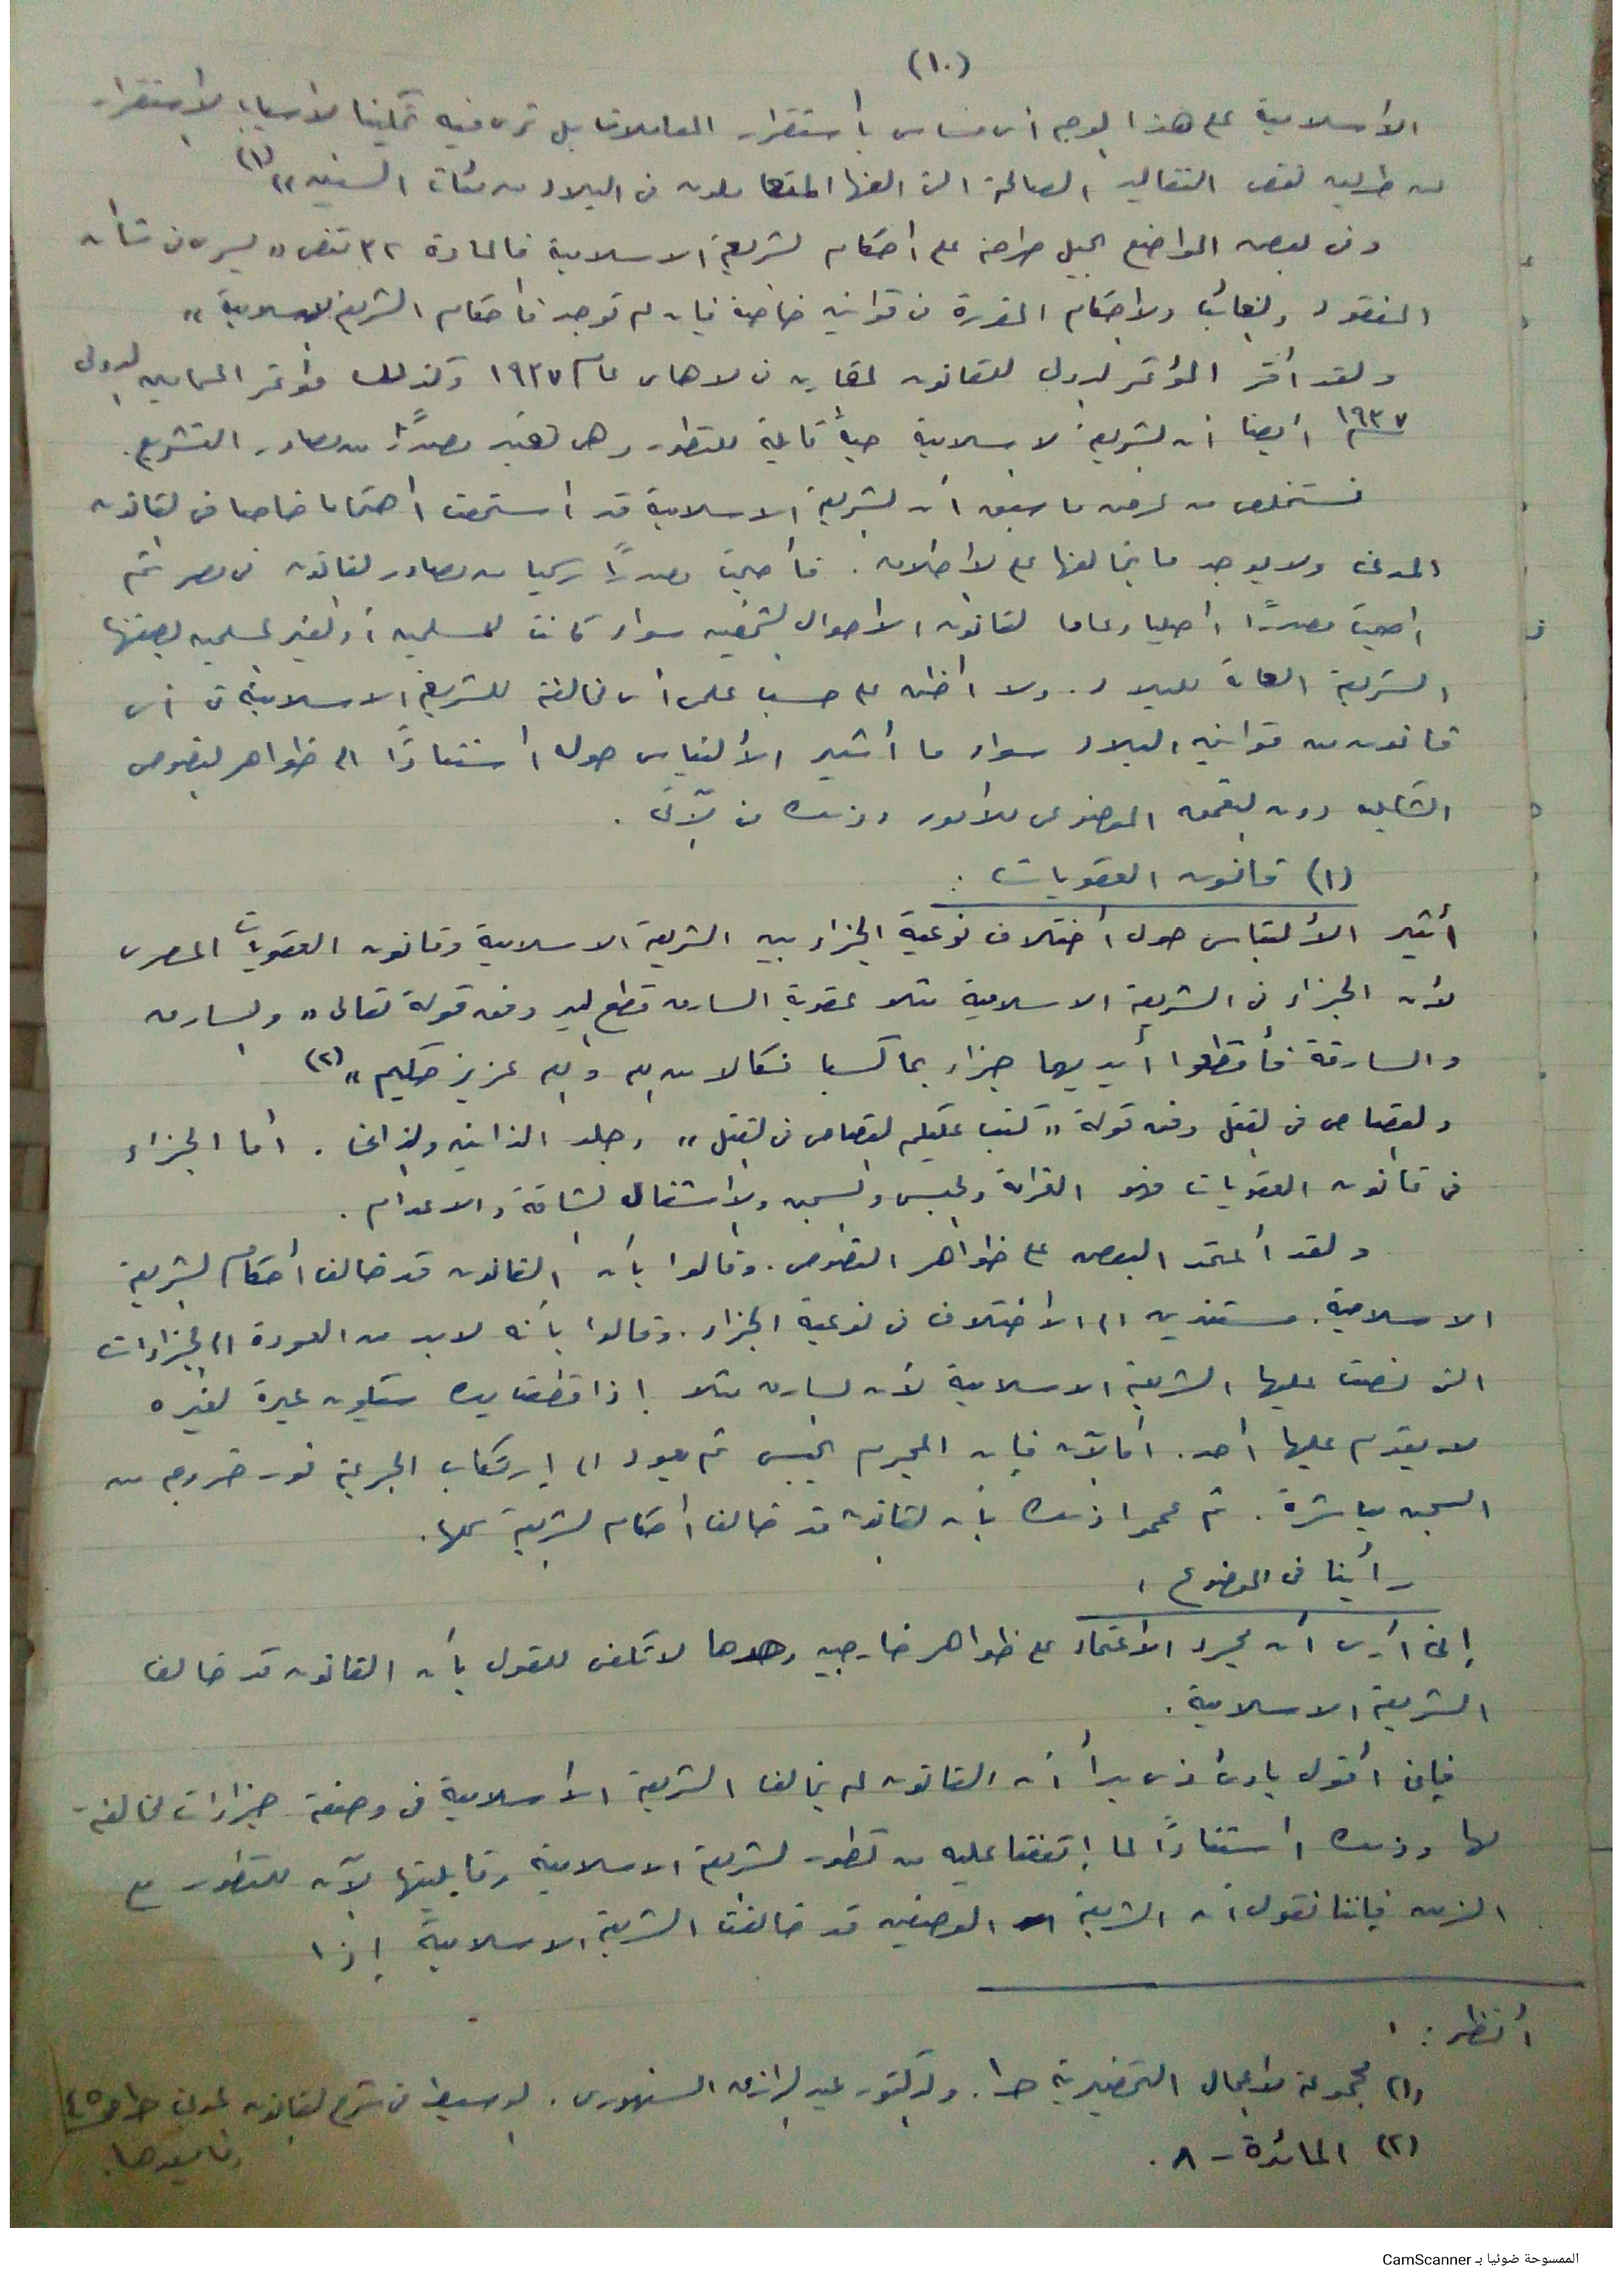 (١٠)
الأسلامية على هذا الوجه أى مساس بأستقرار المعاملات بل ترى فيه تمكينا لأسباب الأستقرار
عن طريق بعض التقاليد الصالحة التى ألفها المتعاملون فى البلاد من مئات السنين ،، (١)
وفى بعض المواضع يحيل صراحة على أحكام الشريعة الاسلامية فالمادة ٣٢ تنص ,, يسرى فى شأن
المفقود والغائب والأحكام المقررة فى قوانين خاصة فإن لم توجد فأحكام الشريعة الاسلامية ,,
ولقد أقر المؤتمر الدولى للقانون المقارن فى لاهاى عام ١٩٣٧ وكذلك مؤتمر المحامين الدولى
١٩٣٧ أيضا أن الشريعة الاسلامية حية قابلة للتطور وهى تعتبر مصدرًا من مصادر التشريع .
نستخلص من عرض ما سبق أن الشريعة الاسلامية قد استحقت اهتماما خاصا فى القانون
المدنى ولا يوجد ما يخالفها على الأطلاق . فأصبحت مصدرًا رسميا من مصادر القانون فى مصر ثم
اصبحت مصدرًا اصليا وعاما لقانون الأحوال الشخصيه سواء كانت للمسلمين أو لغير المسلمين بصفتها
الشريعة العامة للبلاد . ولا أظن على حسب علمى أى مخالفة للشريعة الاسلامية فى أى
قانون من قوانين البلاد سواء ما أثير الألتباس حوله أستنادًا الى ظواهر النصوص
الشكليه دون التعمق الموضوعى للأمور وذلك فى الآتى .
(١) قانون العقوبات :
أثير الألتباس حول أختلاف نوعية الجزاء بين الشريعة الاسلامية وقانون العقوبات المصرى
لأن الجزاء فى الشريعة الاسلامية مثلا عقوبة السارق قطع اليد وفق قولة تعالى ,, والسارق
والسارقة فأقطعوا أيديهما جزاء بما كسبا نكالا من الله والله عزيز حكيم ,, (٢)
والقصاص فى القتل وفق قولة ,, كتب عليكم القصاص فى القتل ,, وجلد الزانيه والزانى . أما الجزاء
فى قانون العقوبات فهو الغرامة والحبس والسجن والأشغال الشاقة والاعدام .
ولقد أعتمد البعض على ظواهر النصوص . وقالوا بأن القانون قد خالف أحكام الشريعة
الاسلامية . مستندين الى الأختلاف فى نوعية الجزاء . وقالوا بأنه لابد من العودة الى الجزاءات
التى نصت عليها الشريعة الاسلامية لأن السارق مثلا إذا قطعت يده ستكون عبرة لغيره
لا يقدم عليها أحد . أما الآن فإن المجرم يحبس ثم يعود الى إرتكاب الجريمة فور خروجه من
السجن مباشرة . ثم عمموا ذلك بأن القانون قد خالف أحكام الشريعة كلها .
رأينا فى الموضوع :
إنى أرى أن مجرد الأعتماد على ظواهر خارجيه وحدها لا تكفى للقول بأن القانون قد خالف
الشريعة الاسلامية .
فإنى أقول بادئ ذى بدأ أن القانون لم يخالف الشريعة الأسلامية فى وضعة جزاءات مخالفة
لها وذلك أستنادًا لما إتفقنا عليه من تطور الشريعة الاسلامية وقابليتها الآن للتطور مع
الزمن فإننا نقول أن الشريعة الوضعيه قد خالفت الشريعة الاسلامية إذا
أنظر :
(١) مجموعة الأعمال التحضيرية حـ١ . والدكتور عبد الرازق السنهورى . الوسيط فى شرح القانون المدنى حـ١ ص ٤٥
وما بعدها .
(٢) المائدة - ٨ .
الممسوحة ضوئيا بـ CamScanner